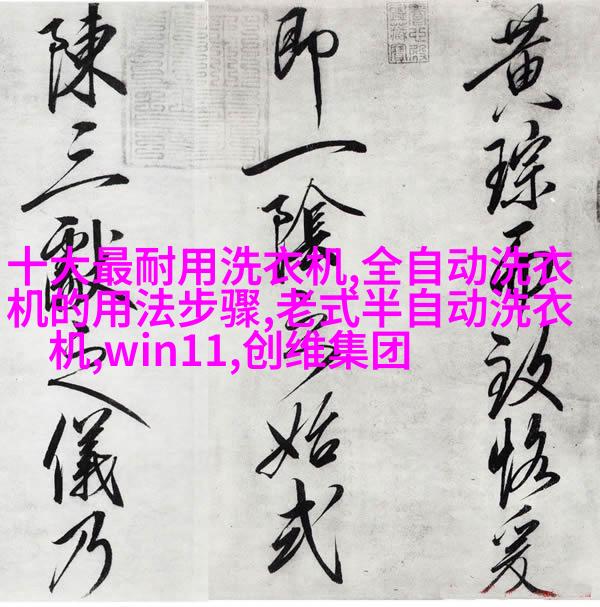 十大最耐用洗衣机,全自动洗衣
机的用法步骤,老式半自动洗衣
机,win11,创维集团
黄琮而致恪爰
即一陰始式
陳三獻之儀乃